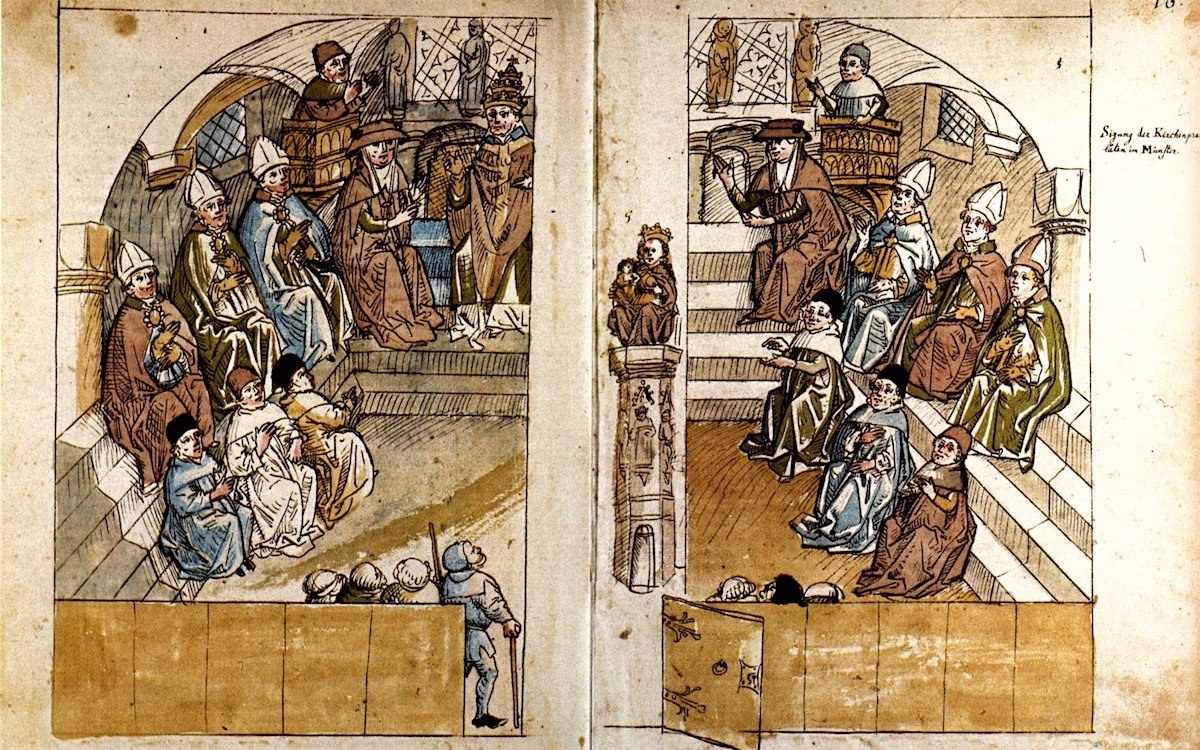 16.
5
5
Sizung der Kirchenpre
laten im Münster.